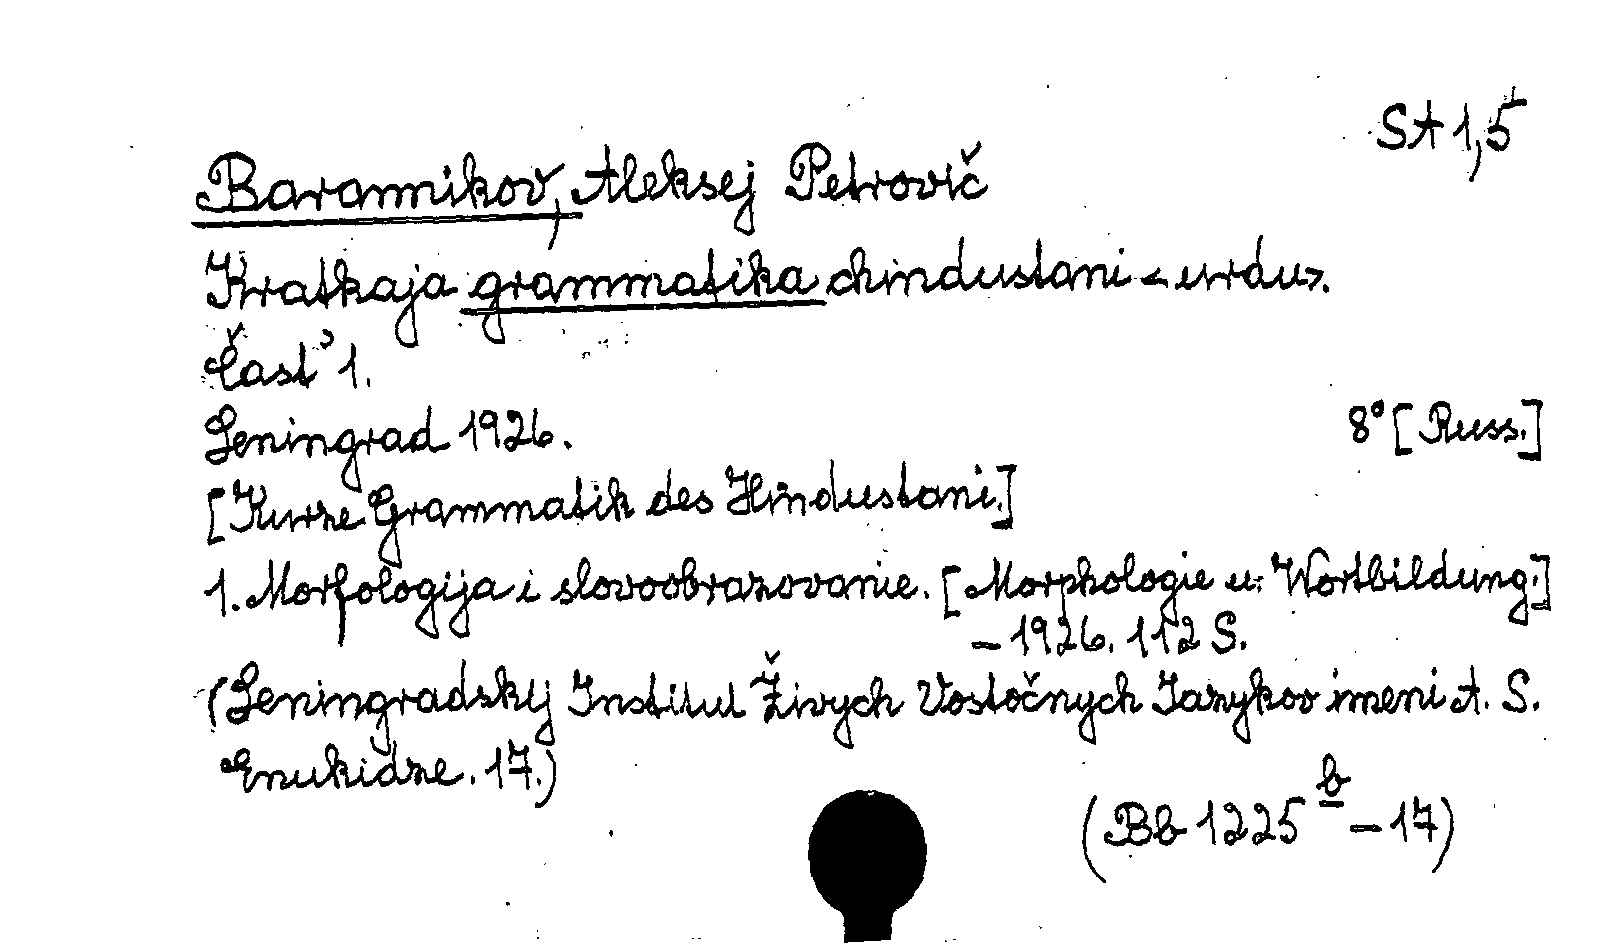 St 1,5
Barannikov, Aleksej Petrovič
Kratkaja grammatika chindustani <urdu>.
Čast' 1.
Leningrad 1926.
8° [Russ.]
[Kurze Grammatik des Hindustani.]
1. Morfologija i slovoobrazovanie. [Morphologie u. Wortbildung.]
– 1926. 112 S.
(Leningradskij Institut Živych Vostočnych Jazykov imeni A. S.
Enukidze. 17.)
(Bb 1225 b – 17)